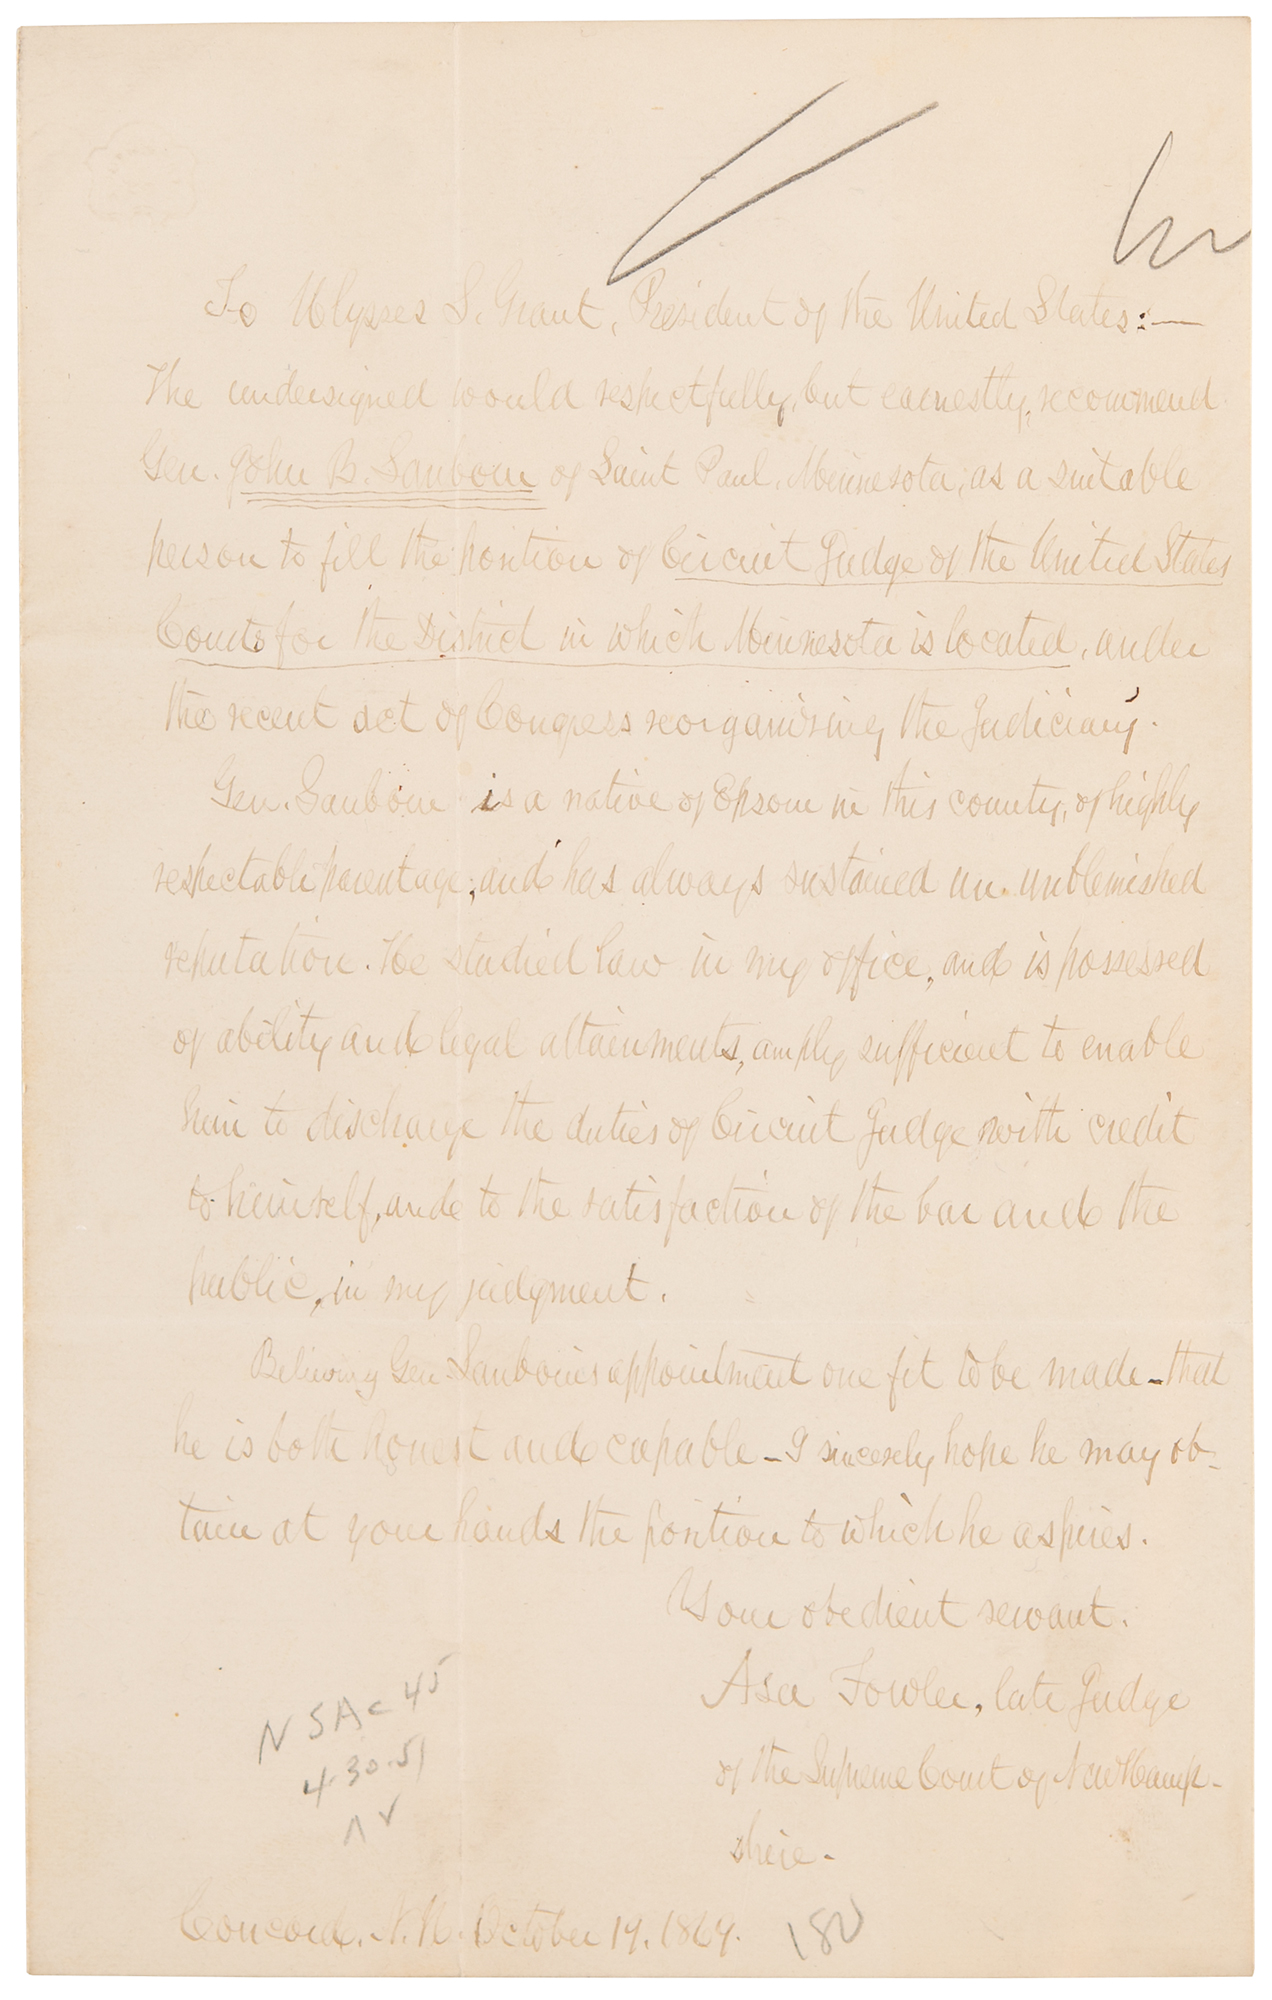 To Ulysses S. Grant, President of the United States:—
The undersigned would respectfully, but earnestly, recommend
Gen. John B. Sanborn of Saint Paul, Minnesota, as a suitable
person to fill the position of Circuit Judge of the United States
Courts for the District in which Minnesota is located, under
the recent act of Congress reorganising the Judiciary.
Gen. Sanborn is a native of Epsom in this county, of highly
respectable parentage; and has always sustained an unblemished
reputation. He studied law in my office, and is possessed
of ability and legal attainments, amply sufficient to enable
him to discharge the duties of Circuit Judge with credit
to himself, and to the satisfaction of the bar and the
public, in my judgment.
Believing Gen Sanborn's appointment one fit to be made – that
he is both honest and capable – I sincerely hope he may ob-
tain at your hands the position to which he aspires.
Your obedient servant.
Asa Fowler, late Judge
of the Supreme Court of New Hamp-
shire.
N SA c 45
4-30-51
Concord, N.H. October 19. 1869.
180